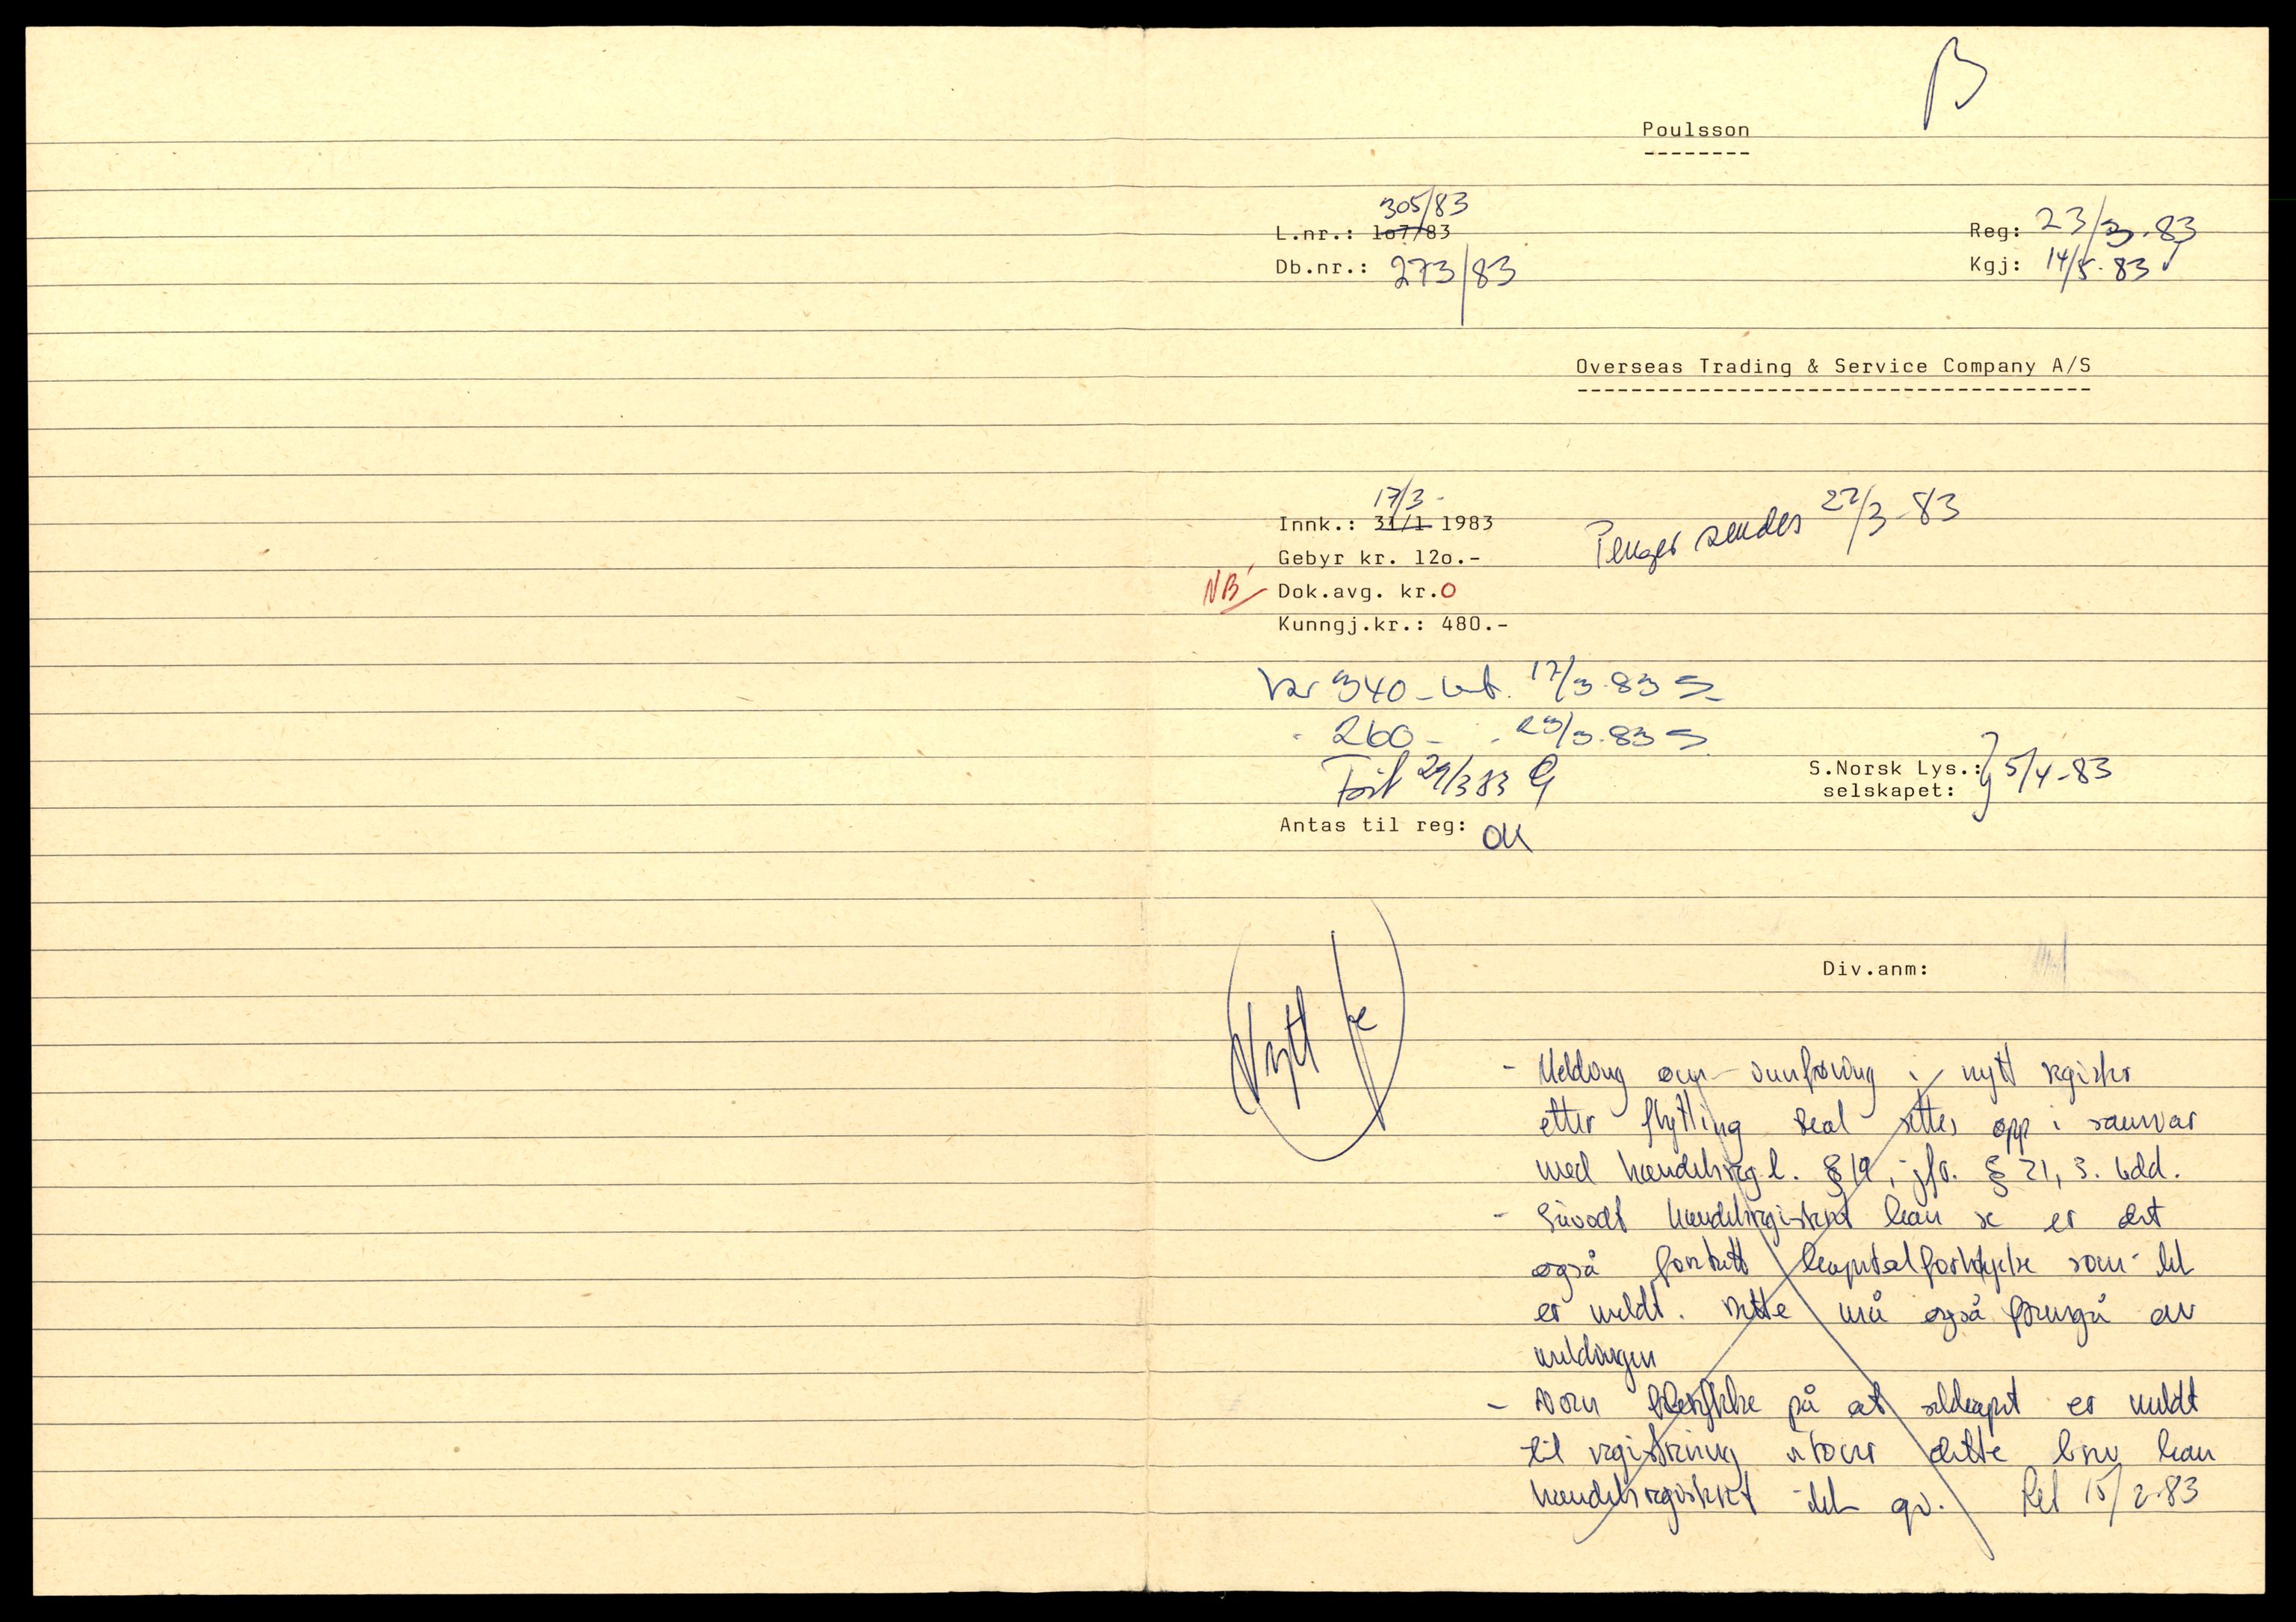 B
Poulsson
305/83
L.nr.: 107/83
Reg: 23/3-83
Db.nr.: 273/83
Kgj: 14/5-83
Overseas Trading & Service Company A/S
17/3-
Innk.: 31/1 1983
Penger sendes 22/3-83
Gebyr kr. 12o.-
NB! Dok.avg. kr.0
Kunngj.kr.: 480.-
kr 340- bet. 17/3-83 S
" 260- " 23/3-83 S
Ført 29/3 83 G
S.Norsk Lys.: } 5/4-83
selskapet:
Antas til reg: OK
Nytt
Div.anm:
- Melding om innføring i nytt register
etter flytting skal settes opp i samsvar
med handelsreg.l. § 19, jfr. § 21, 3. ledd.
- Såvidt handelsregisteret kan se er det
også foretatt som ikke
er meldt. Dette må også fremgå av
meldingen
- Noen på at selskapet er meldt
til registrering utover dette brev kan
handelsregisteret ikke gi. Ret 15/2-83